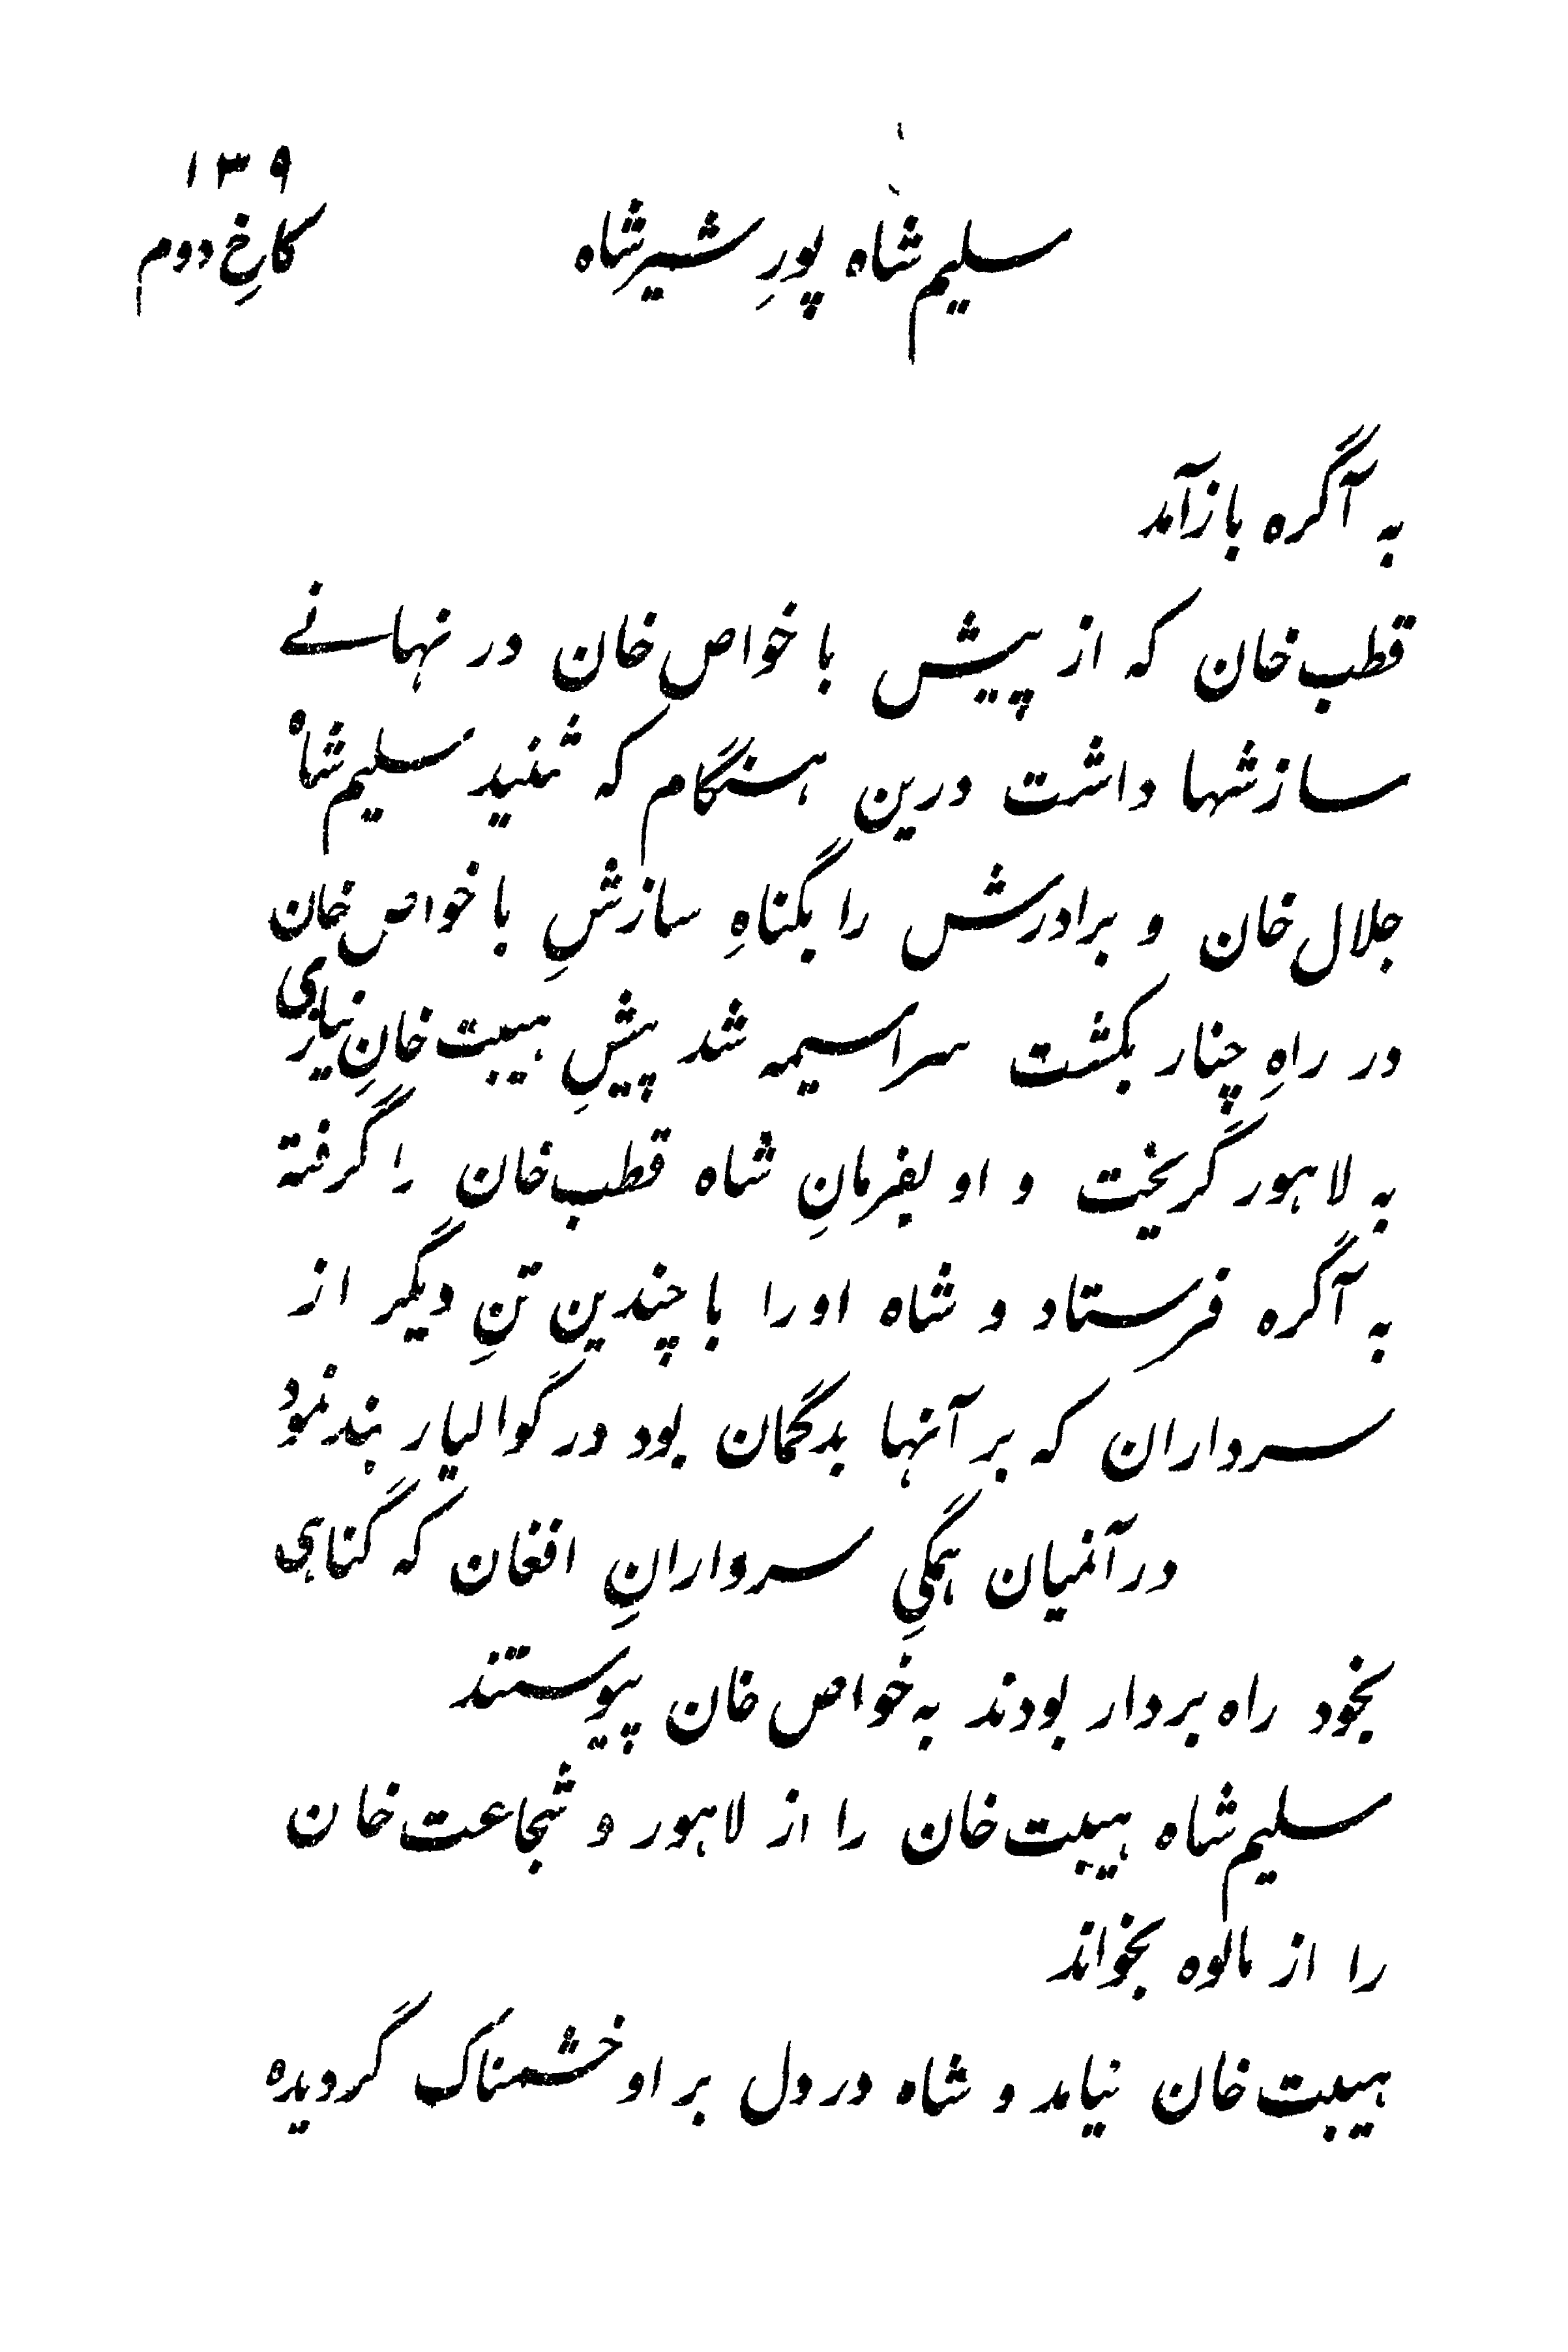 ۱۳۹
سلیم‌شاه پورِ شیرشاه
کارخِ دوم
به آگره بازآمد
قطب‌خان که از پیش با خواص‌خان در نهانے
سازشها داشت درین هنگام که شنید سلیم‌شاه
جلال‌خان و برادرش را بگناهِ سازشِ با خواص‌خان
در راهِ چنار بکشت سراسیمه شد پیشِ هیبت‌خانِ نیازی
به لاهور گریخت و او بفرمانِ شاه قطب‌خان را گرفته
به آگره فرستاد و شاه اورا با چندین تنِ دیگر از
سرداران که بر آنها بدگمان بود در گوالیار بند نمود
در آنمیان همگیِ سردارانِ افغان که گناهی
بخود راه بردار بودند به خواص‌خان پیوستند
سلیم‌شاه هیبت‌خان را از لاهور و شجاعت‌خان
را از مالوه بخواند
هیبت‌خان نیامد و شاه در دل بر او خشمناک گردیده